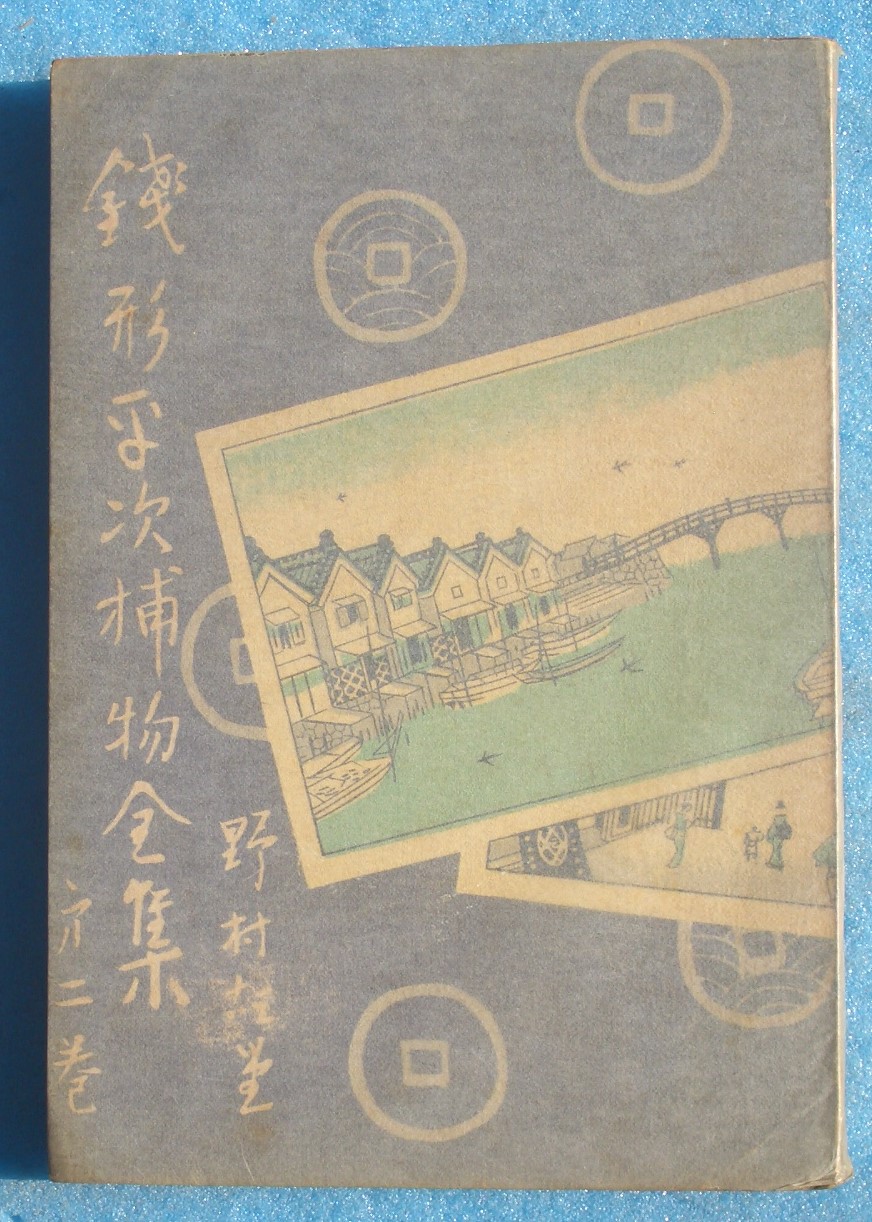 錢形平次捕物全集
第二巻
野村胡堂